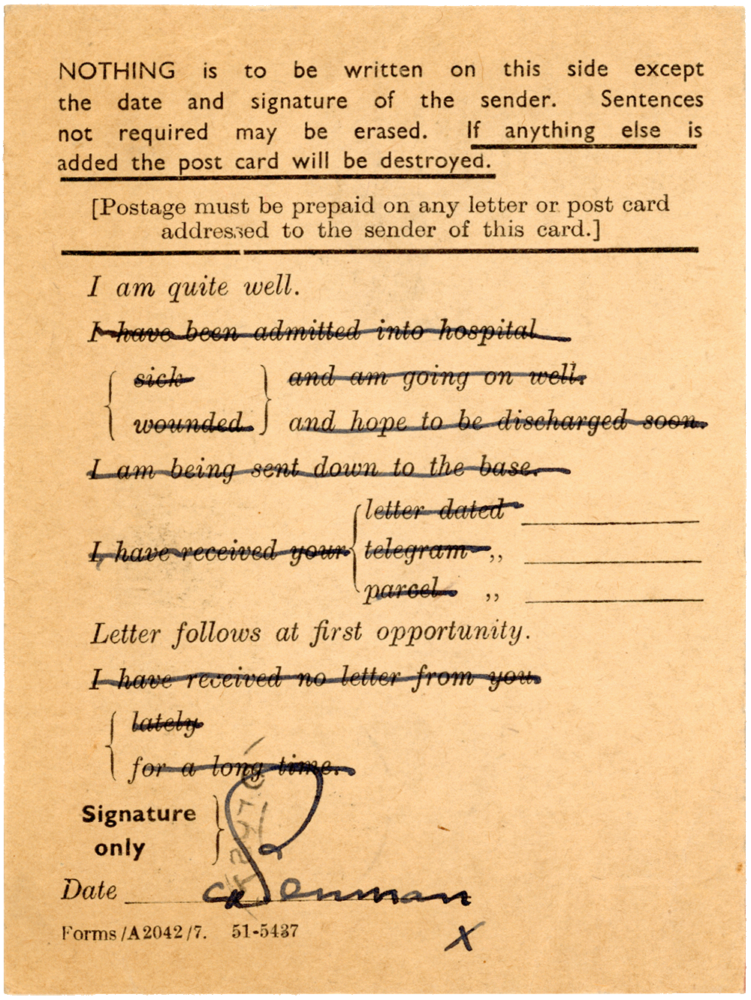 NOTHING is to be written on this side except
the date and signature of the sender. Sentences
not required may be erased. If anything else is
added the post card will be destroyed.
[Postage must be prepaid on any letter or post card
addressed to the sender of this card.]
I am quite well.
I have been admitted into hospital
{ sick } and am going on well.
{ wounded } and hope to be discharged soon.
I am being sent down to the base.
I have received your { letter dated
telegram ,,
parcel ,,
Letter follows at first opportunity.
I have received no letter from you
{ lately
for a long time.
Signature
only }
Date
Penman
Forms/A2042/7. 51-5437
X